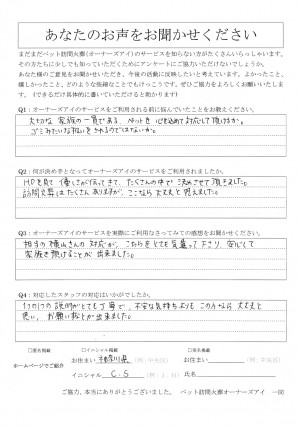 あなたのお声をお聞かせください
まだまだペット訪問火葬(オーナーズアイ)のサービスを知らない方がたくさんいらっしゃいます。
その方たちに少しでも知っていただくためにアンケートにご協力いただけないでしょうか。
あなた様のご意見をお聞かせいただき、今後の活動に反映したいと考えています。よかったこと、
嬉しかったこと、どのような些細なことでもけっこうです。ぜひご協力をよろしくお願いいたします。(できるだけ具体的に書いていただけると助かります)
Q1：オーナーズアイのサービスをご利用される前に悩んでいたことをお教えください。
大切な 家族の一員である、ペットを 心を込めて対応して頂けるか。
ゴミみたいな扱いをされるのではないか。
Q2：何が決め手となってオーナーズアイのサービスをご利用されましたか。
HPを見て 優しさが伝わってきて、たくさんの中で 決めさせて頂きました。
訪問火葬はたくさんありますが、ここなら 大丈夫と思えました。
Q3：オーナーズアイのサービスを実際にご利用なさってみての感想をお聞かせください。
担当の横山さんの対応が、こちらをとても気遣って下さり、安心して
家族を預けることが 出来ました。
Q4：対応したスタッフの対応はいかがでしたか。
1つ1つの説明がとても丁寧で、不安な気持ちよりも この方なら 大丈夫と
思い、お願い致すことが出来ました。
□匿名掲載 □イニシャル掲載 □実名掲載
お住まい 神奈川県 (例:中央区) お住まい (例:中央区)
ホームページでご紹介
イニシャル C.S (例:J.H) 氏名
ご協力、本当にありがとうございました。 ペット訪問火葬オーナーズアイ 一同